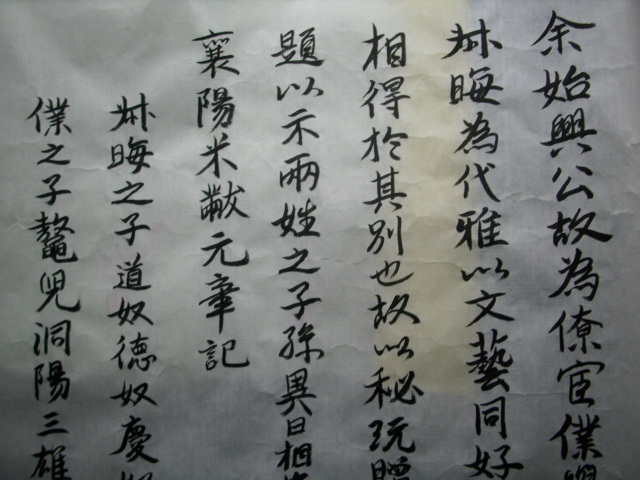 余始興公故為僚宦僕與
叔晦為代雅以文藝同好
相得於其別也故以秘玩贈
題以示兩姓之子孫異日相
襄陽米黻元章記
叔晦之子道奴德奴慶奴
僕之子鼇兒洞陽三雄